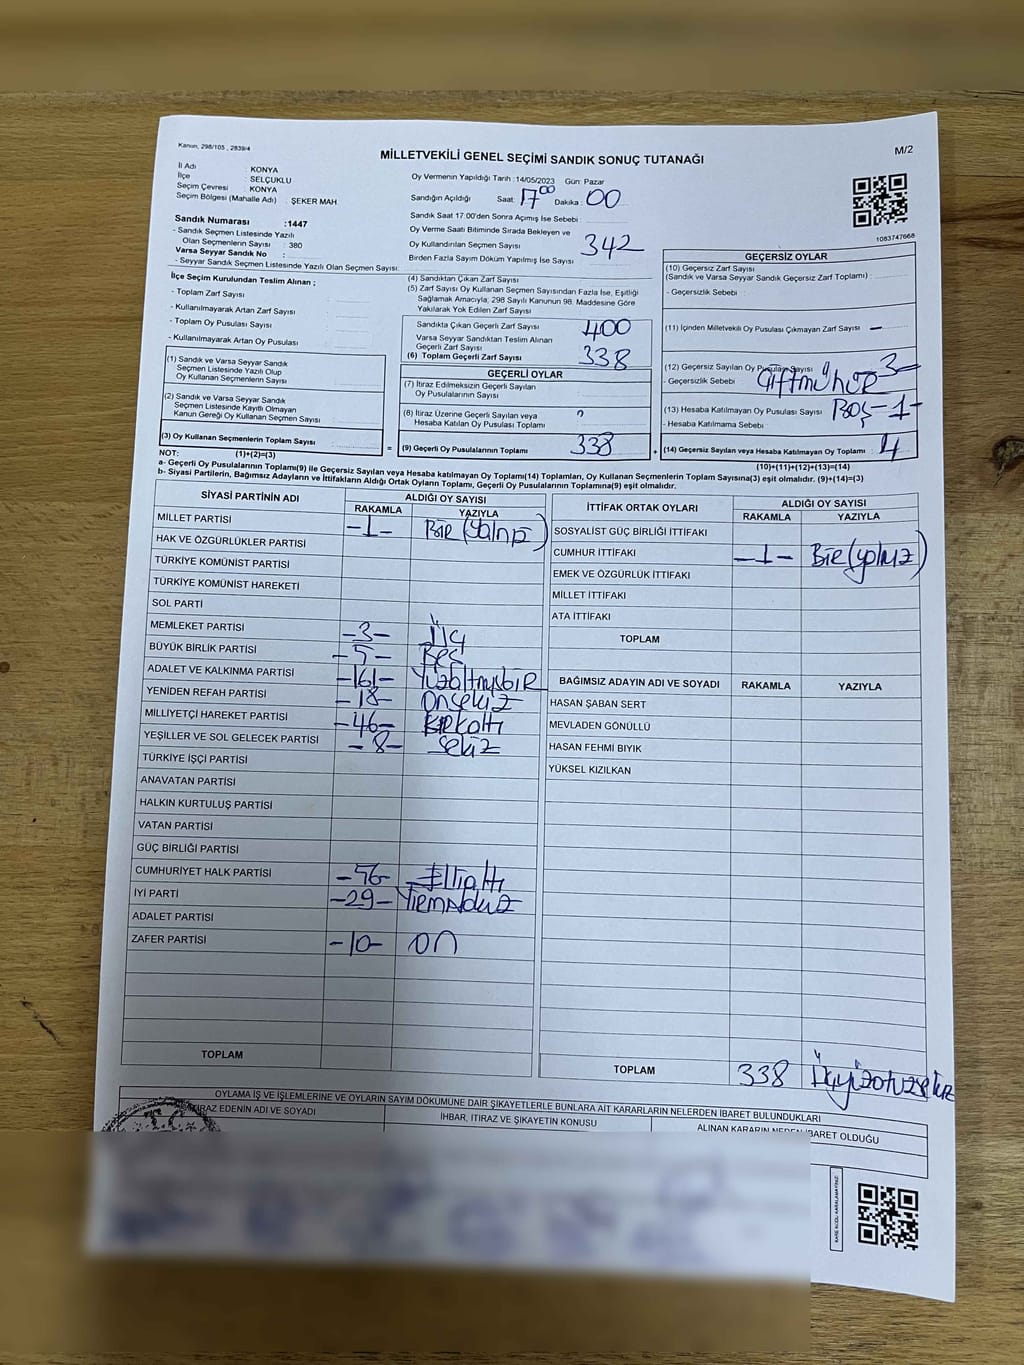 Kanun, 298/105 , 2839/4
M/2
MİLLETVEKİLİ GENEL SEÇİMİ SANDIK SONUÇ TUTANAĞI
İl Adı : KONYA
İlçe : SELÇUKLU
Seçim Çevresi : KONYA
Seçim Bölgesi (Mahalle Adı) : ŞEKER MAH.
Sandık Numarası :1447
- Sandık Seçmen Listesinde Yazılı
Olan Seçmenlerin Sayısı : 380
Varsa Seyyar Sandık No :
- Seyyar Sandık Seçmen Listesinde Yazılı Olan Seçmen Sayısı:
Oy Vermenin Yapıldığı Tarih :14/05/2023 Gün: Pazar
Sandığın Açıldığı Saat: 17 00 Dakika : 00
Sandık Saat 17.00'den Sonra Açımış İse Sebebi :
Oy Verme Saati Bitiminde Sırada Bekleyen ve
Oy Kullandırılan Seçmen Sayısı 342
Birden Fazla Sayım Döküm Yapılmış İse Sayısı
1083747668
İlçe Seçim Kurulundan Teslim Alınan ;
- Toplam Zarf Sayısı
- Kullanılmayarak Artan Zarf Sayısı
- Toplam Oy Pusulası Sayısı
- Kullanılmayarak Artan Oy Pusulası
(1) Sandık ve Varsa Seyyar Sandık
Seçmen Listesinde Yazılı Olup
Oy Kullanan Seçmenlerin Sayısı
(2) Sandık ve Varsa Seyyar Sandık
Seçmen Listesinde Kayıtlı Olmayan
Kanun Gereği Oy Kullanan Seçmen Sayısı
(3) Oy Kullanan Seçmenlerin Toplam Sayısı =
(4) Sandıktan Çıkan Zarf Sayısı
(5) Zarf Sayısı Oy Kullanan Seçmen Sayısından Fazla İse, Eşitliği
Sağlamak Amacıyla; 298 Sayılı Kanunun 98. Maddesine Göre
Yakılarak Yok Edilen Zarf Sayısı
Sandıkta Çıkan Geçerli Zarf Sayısı 400
Varsa Seyyar Sandıktan Teslim Alınan
Geçerli Zarf Sayısı
(6) Toplam Geçerli Zarf Sayısı 338
GEÇERLİ OYLAR
(7) İtiraz Edilmeksizin Geçerli Sayılan
Oy Pusulalarının Sayısı
(8) İtiraz Üzerine Geçerli Sayılan veya
Hesaba Katılan Oy Pusulası Toplamı
(9) Geçerli Oy Pusulalarının Toplamı 338 +
GEÇERSİZ OYLAR
(10) Geçersiz Zarf Sayısı
(Sandık ve Varsa Seyyar Sandık Geçersiz Zarf Toplamı) :
- Geçersizlik Sebebi :
(11) İçinden Milletvekili Oy Pusulası Çıkmayan Zarf Sayısı : —
(12) Geçersiz Sayılan Oy Pusulası Sayısı 3-
- Geçersizlik Sebebi : Çiftmühür
(13) Hesaba Katılmayan Oy Pusulası Sayısı Boş -1-
- Hesaba Katılmama Sebebi
(14) Geçersiz Sayılan veya Hesaba Katılmayan Oy Toplamı : 4
NOT: (1)+(2)=(3)
(10)+(11)+(12)+(13)=(14)
a- Geçerli Oy Pusulalarının Toplamı(9) ile Geçersiz Sayılan veya Hesaba katılmayan Oy Toplamı(14) Toplamları, Oy Kullanan Seçmenlerin Toplam Sayısına(3) eşit olmalıdır. (9)+(14)=(3)
b- Siyasi Partilerin, Bağımsız Adayların ve İttifakların Aldığı Ortak Oyların Toplamı, Geçerli Oy Pusulalarının Toplamına(9) eşit olmalıdır.
SİYASİ PARTİNİN ADI ALDIĞI OY SAYISI
RAKAMLA YAZIYLA
MİLLET PARTİSİ -1- Bir (yalnız)
HAK VE ÖZGÜRLÜKLER PARTİSİ
TÜRKİYE KOMÜNİST PARTİSİ
TÜRKİYE KOMÜNİST HAREKETİ
SOL PARTİ
MEMLEKET PARTİSİ -3- Üç
BÜYÜK BİRLİK PARTİSİ -5- Beş
ADALET VE KALKINMA PARTİSİ -161- Yüzaltmışbir
YENİDEN REFAH PARTİSİ -18- Onsekiz
MİLLİYETÇİ HAREKET PARTİSİ -46- Kırkaltı
YEŞİLLER VE SOL GELECEK PARTİSİ -8- Sekiz
TÜRKİYE İŞÇİ PARTİSİ
ANAVATAN PARTİSİ
HALKIN KURTULUŞ PARTİSİ
VATAN PARTİSİ
GÜÇ BİRLİĞİ PARTİSİ
CUMHURİYET HALK PARTİSİ -56- Ellialtı
İYİ PARTİ -29- Yirmidokuz
ADALET PARTİSİ
ZAFER PARTİSİ -10- on
TOPLAM
İTTİFAK ORTAK OYLARI ALDIĞI OY SAYISI
RAKAMLA YAZIYLA
SOSYALİST GÜÇ BİRLİĞİ İTTİFAKI
CUMHUR İTTİFAKI -1- Bir (yalnız)
EMEK VE ÖZGÜRLÜK İTTİFAKI
MİLLET İTTİFAKI
ATA İTTİFAKI
TOPLAM
BAĞIMSIZ ADAYIN ADI VE SOYADI RAKAMLA YAZIYLA
HASAN ŞABAN SERT
MEVLADEN GÖNÜLLÜ
HASAN FEHMİ BIYIK
YÜKSEL KIZILKAN
TOPLAM 338 Üçyüzotuzsekiz
OYLAMA İŞ VE İŞLEMLERİNE VE OYLARIN SAYIM DÖKÜMÜNE DAİR ŞİKAYETLERLE BUNLARA AİT KARARLARIN NELERDEN İBARET BULUNDUKLARI
İTİRAZ EDENİN ADI VE SOYADI İHBAR, İTİRAZ VE ŞİKAYETİN KONUSU ALINAN KARARIN NEDEN İBARET OLDUĞU
T.C.